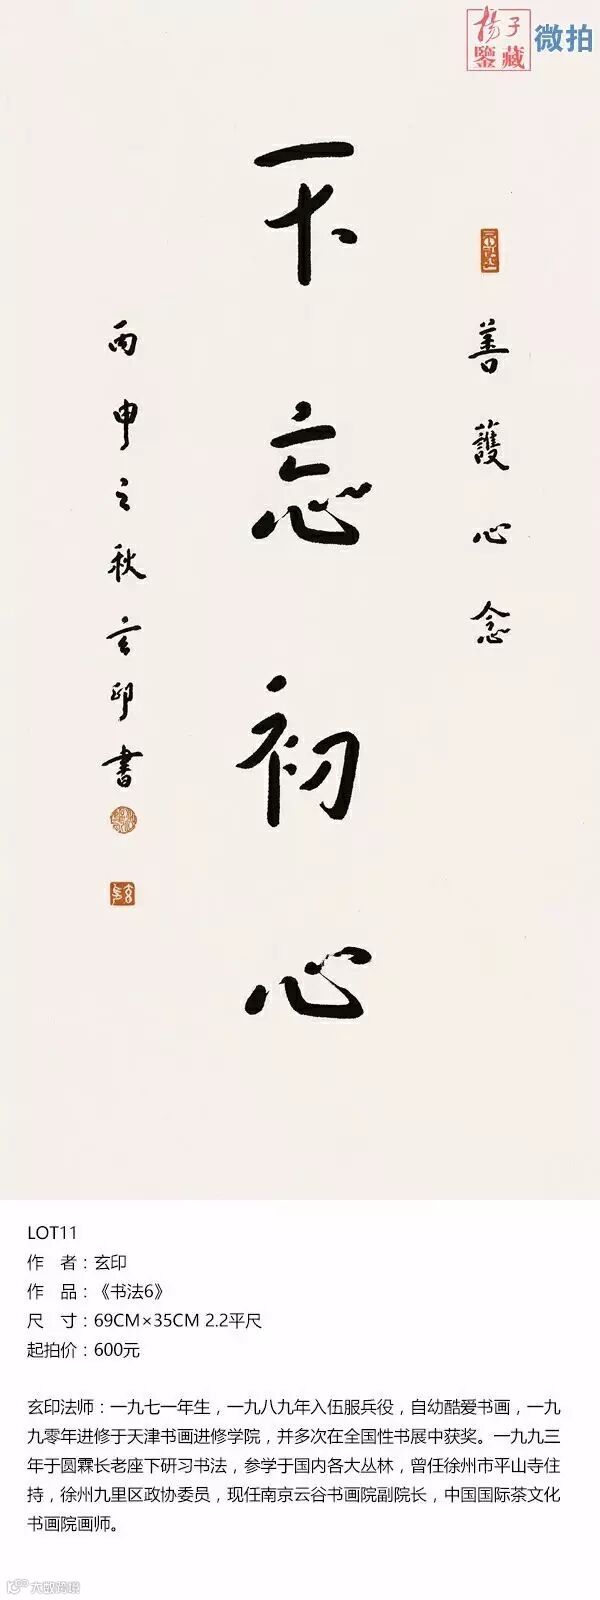 楊子
鑒藏
微拍
善護心念
不忘初心
丙申之秋玄印書
LOT11
作 者：玄印
作 品：《书法6》
尺 寸：69CM×35CM 2.2平尺
起拍价：600元
玄印法师：一九七一年生，一九八九年入伍服兵役，自幼酷爱书画，一九
九零年进修于天津书画进修学院，并多次在全国性书展中获奖。一九九三
年于圆霖长老座下研习书法，参学于国内各大丛林，曾任徐州市平山寺住
持，徐州九里区政协委员，现任南京云谷书画院副院长，中国国际茶文化
书画院画师。
大数跨境